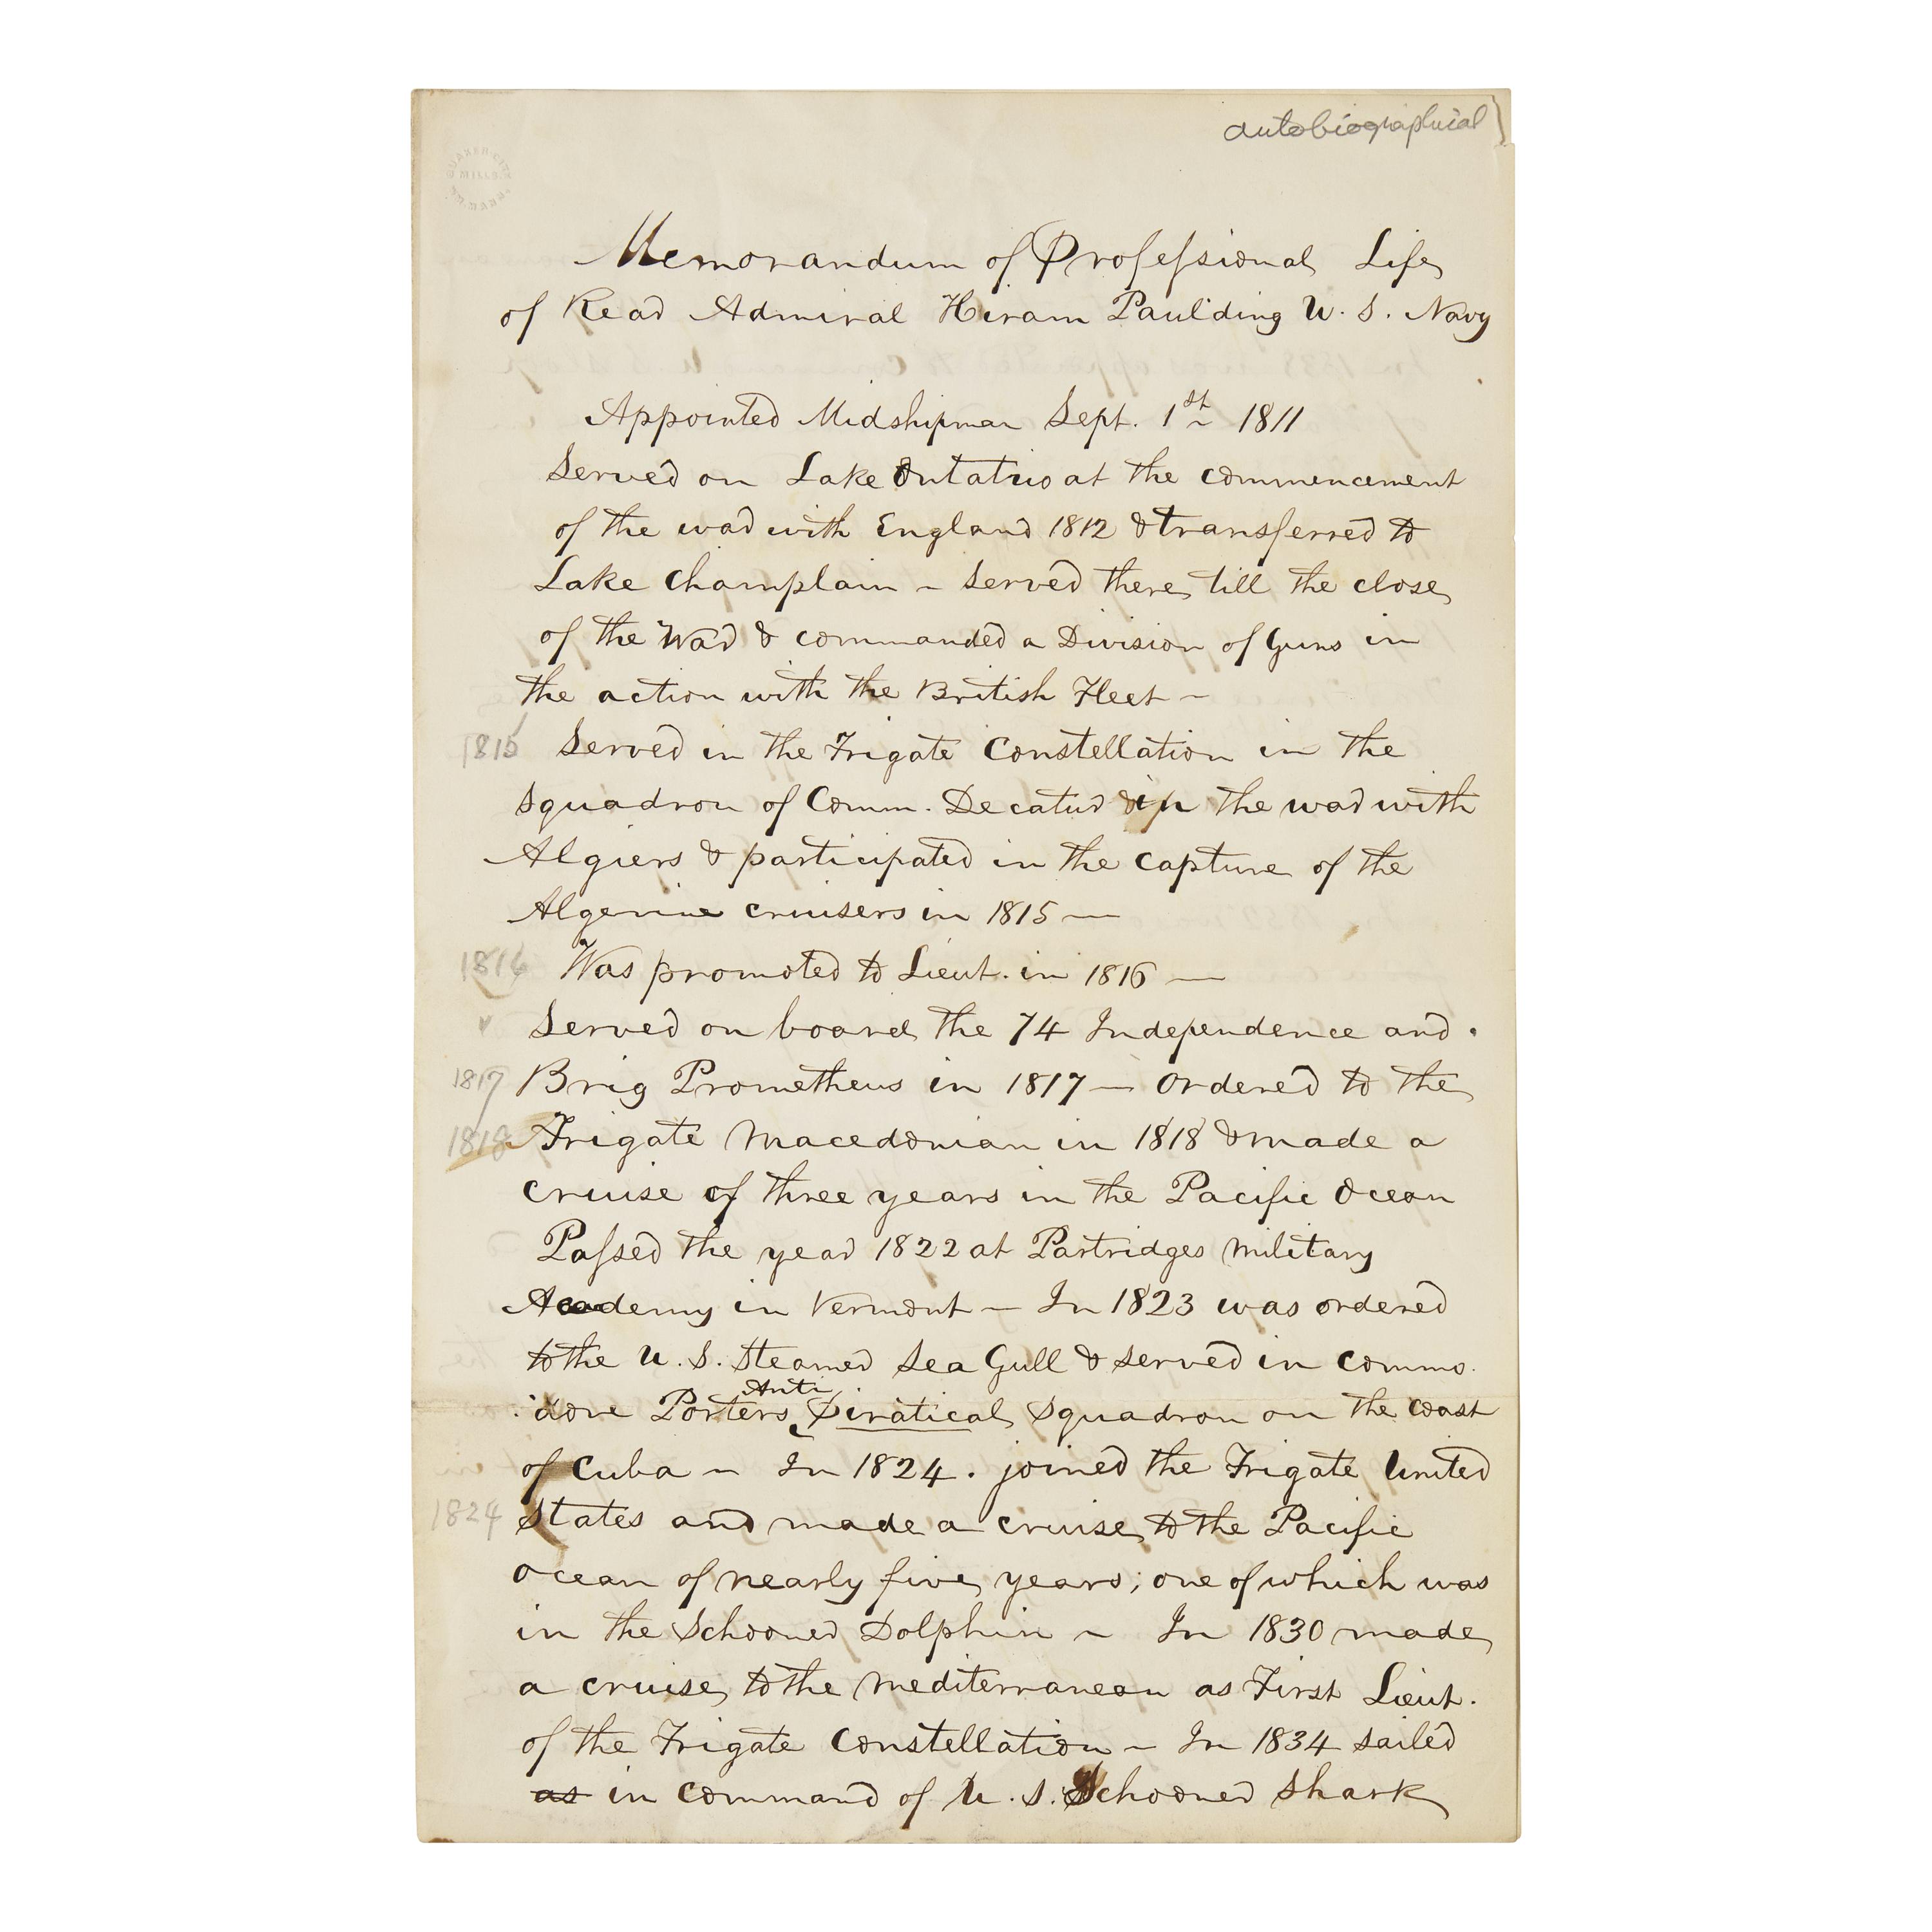 autobiographical)
Memorandum of Professional Life
of Rear Admiral Hiram Paulding U. S. Navy
Appointed Midshipman Sept. 1st 1811
Served on Lake Ontatrio at the commencement
of the war with England 1812 & transferred to
Lake Champlain - Served there till the close
of the War & commanded a Division of Guns in
the action with the British Fleet -
1815 Served in the Frigate Constellation in the
Squadron of Comm. Decatur in the war with
Algiers & participated in the capture of the
Algerine cruisers in 1815 —
1816 Was promoted to Lieut. in 1816 —
Served on board the 74 Independence and
1817 Brig Prometheus in 1817 — Ordered to the
1818 Frigate Macedonian in 1818 & made a
cruise of three years in the Pacific Ocean
Passed the year 1822 at Partridges Military
Academy in Vermont — In 1823 was ordered
to the U. S. Steamer Sea Gull & served in Commo.
Anti
:dore Porters Piratical Squadron on the Coast
of Cuba - In 1824. joined the Frigate United
1824 States and made a cruise to the Pacific
Ocean of nearly five years; one of which was
in the Schooner Dolphin - In 1830 made
a cruise to the Mediterranean as First Lieut.
of the Frigate Constellation - In 1834 sailed
as in command of U. S. Schooner Shark